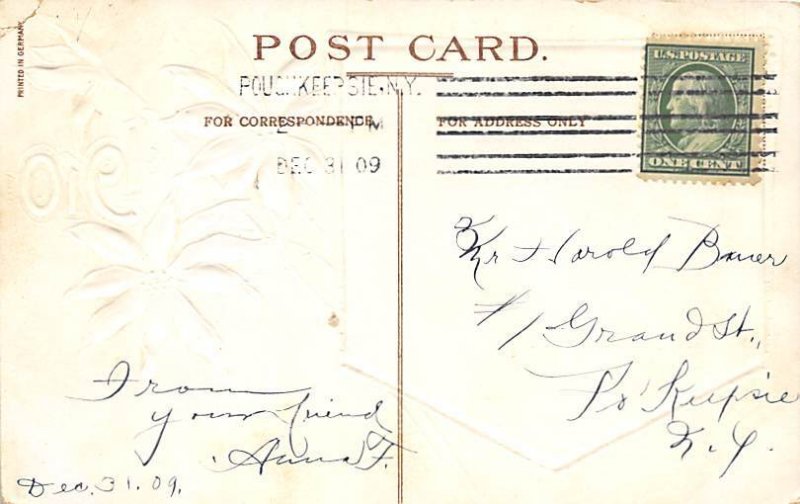 PRINTED IN GERMANY
POST CARD.
POUGHKEEPSIE, N.Y.
FOR CORRESPONDENCE
FOR ADDRESS ONLY
DEC 31 09
U.S. POSTAGE
ONE CENT
Mr Harold Bauer
#1 Grand St.,
Po'Keepsie
N.Y.
From
your friend
Anna F.
Dec. 31. 09.